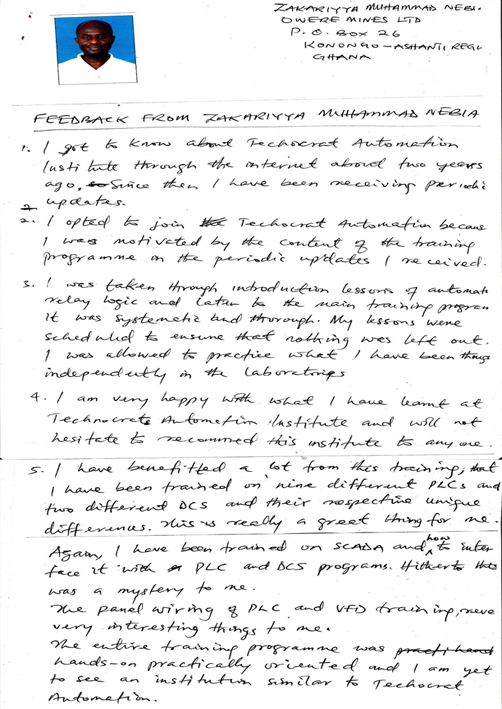 ZAKARIYYA MUHAMMAD NEBI
OWERE MINES LTD
P. O. BOX 26
KONONGO - ASHANTI REGI
GHANA
FEEDBACK FROM ZAKARIYYA MUHAMMAD NEBIA
1. I got to know about Techocrat Automation
Institute through the internet about two years
ago. Since then I have been receiving periodic
updates.
2. I opted to join the Techocrat Automation because
I was motivated by the content of the training
programme in the periodic updates I received.
3. I was taken through introduction lessons of automati
relay logic and later to the main training program
it was systematic and thorough. My lessons were
scheduled to ensure that nothing was left out.
I was allowed to practice what I have been
independently in the laboratries
4. I am very happy with what I have learnt at
Technocrats Automation Institute and will not
hesitate to recommed this institute to any one.
5. I have benefitted a lot from this training, that
I have been trained on nine different PLCs and
two different DCS and their respective unique
differences. This is really a great thing for me.
Again, I have been trained on SCADA and how to inter
face it with PLC and DCS programs. Hitherto this
was a mystery to me.
The panel wiring of PLC and VFD training, were
very interesting things to me.
The entire training programme was
hands-on practically oriented and I am yet
to see an institution similar to Techocrat
Automation.